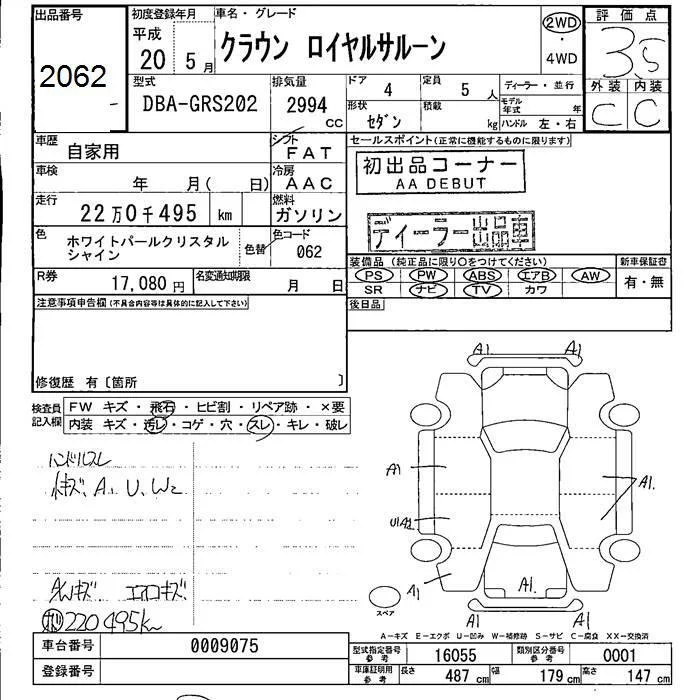 出品番号 初度登録年月 車名・グレード 評価点
2062 平成 20 5月 クラウン ロイヤルサルーン 2WD・4WD 3.5
型式 排気量 ドア 定員 ディーラー・並行 外装 内装
DBA-GRS202 2994 CC 4 5人 モデル年式 年 C C
形状 積載 セダン kg ハンドル 左・右
車歴 自家用 シフト FAT セールスポイント(正常に機能するものに限ります)
車検 年 月( 日) 冷房 AAC 初出品コーナー
AA DEBUT
走行 22万0千495 km 燃料 ガソリン ディーラー出品車
色 ホワイトパールクリスタルシャイン 色替 色コード 062
装備品(純正品に限り○をつけてください) 新車保証書
R券 17,080円 名変通知期限 月 日 PS PW ABS エアB AW 有・無
SR ナビ TV カワ
注意事項申告欄(不具合内容等は具体的に記入して下さい) 後日品
修復歴 有〔箇所 〕
検査員記入欄 FW キズ・飛石・ヒビ割・リペア跡・×要
内装 キズ・汚レ・コゲ・穴・スレ・キレ・破レ
ハンドルスレ
キズ、A1 U、W2
A1 A1
A1 A1.
U1A2
A1 A1.
A1 A1
スペア
エアロキズ
220495km
A−キズ E−エクボ U−凹み W−補修跡 S−サビ C−腐食 XX−交換済
車台番号 0009075 型式指定番号 参考 16055 類別区分番号 参考 0001
登録番号 車庫証明用 参考 長さ 487 cm 幅 179 cm 高さ 147 cm